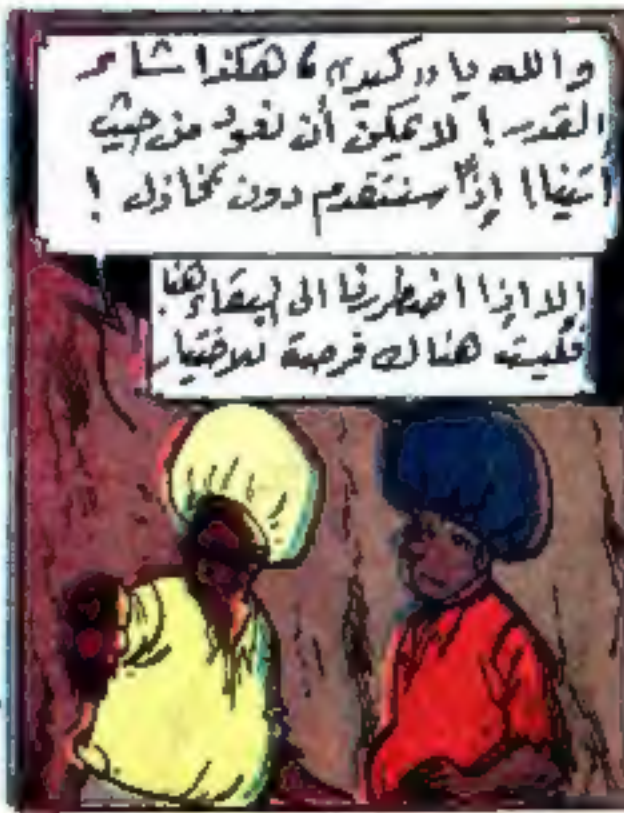 والله يا "كبير"، هكذا شاء
القدر! لا يمكن أن نعود من حيث
أتينا! إذًا سنتقدم دون تخاذل!
إلا إذا اضطررنا الى البقاء هنا
فليست هناك فرصة للاختيار